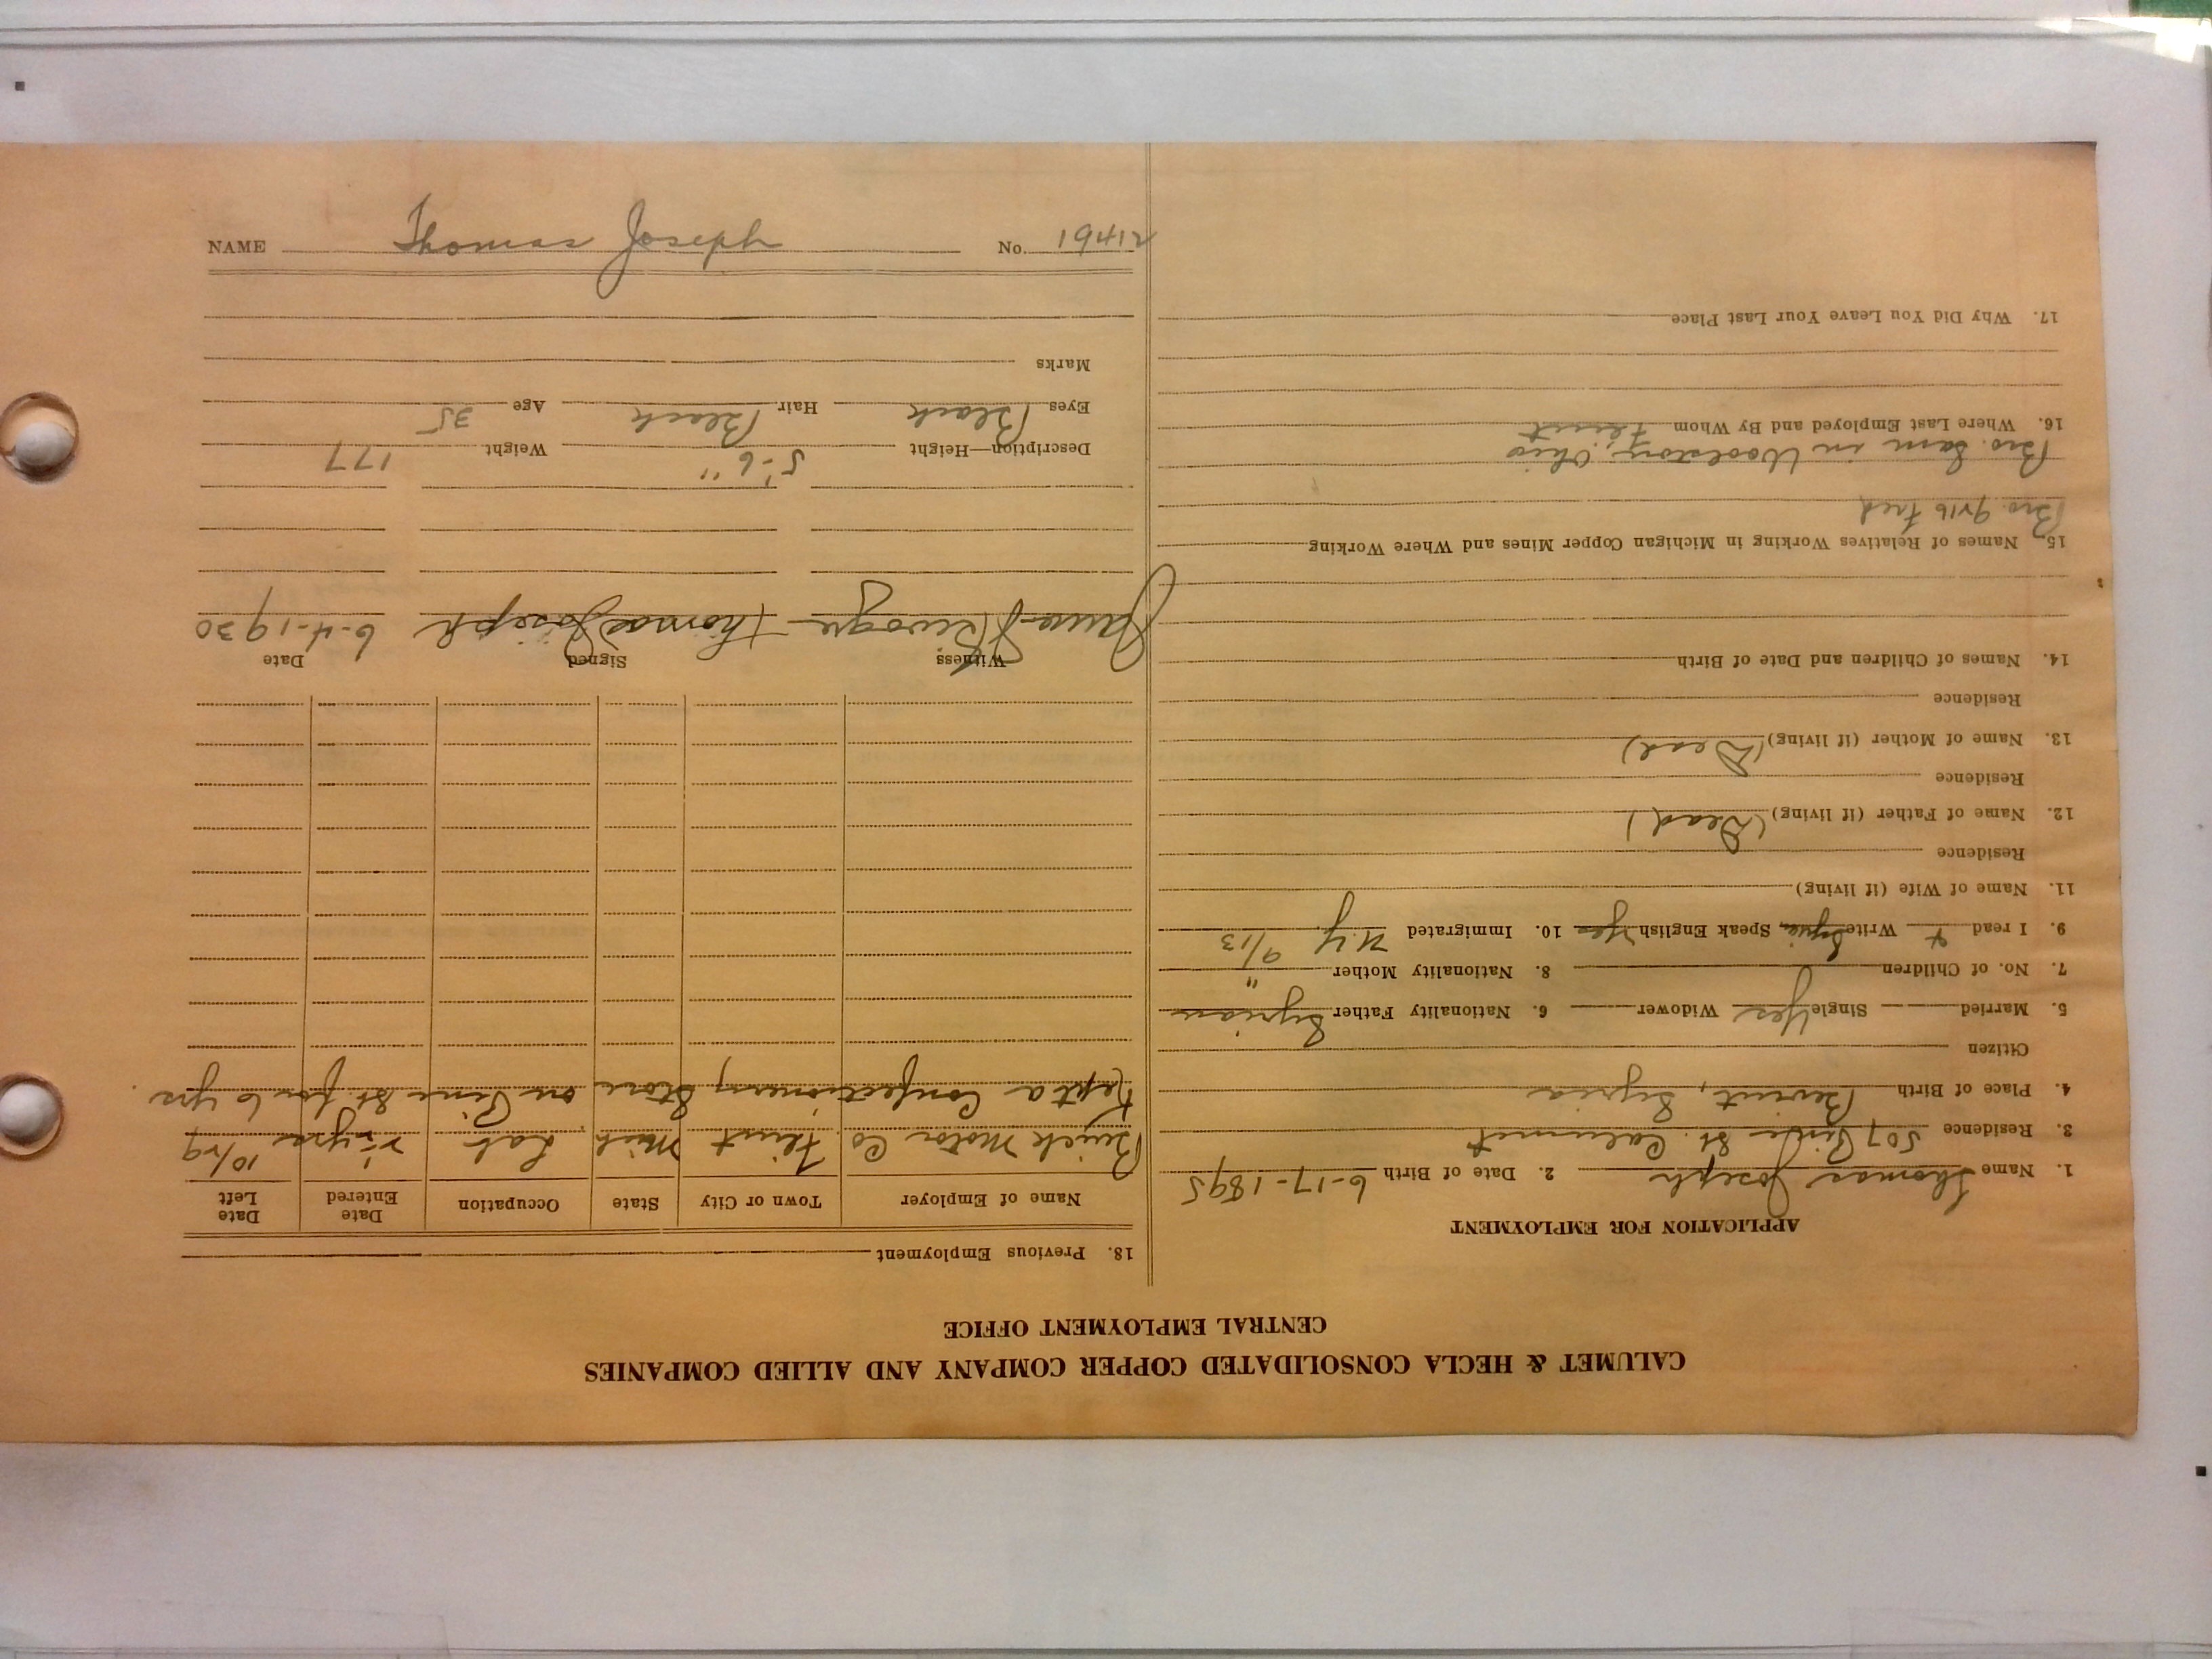 CALUMET & HECLA CONSOLIDATED COPPER COMPANY AND ALLIED COMPANIES
CENTRAL EMPLOYMENT OFFICE
APPLICATION FOR EMPLOYMENT
1. Name Thomas Joseph 2. Date of Birth 6-17-1895
3. Residence 507 Pine St. Calumet
4. Place of Birth Beirut, Syria
Citizen
5. Married Single Yes Widower 6. Nationality Father Syrian
7. No. of Children 8. Nationality Mother "
9. I read + Write Syrian Speak English Yes 10. Immigrated N.Y. 9/13
11. Name of Wife (if living)
Residence
12. Name of Father (if living) (Dead)
Residence
13. Name of Mother (if living) (Dead)
Residence
14. Names of Children and Date of Birth
15. Names of Relatives Working in Michigan Copper Mines and Where Working
Bro. Fred
Bro. Sam in Ohio
16. Where Last Employed and By Whom Flint
17. Why Did You Leave Your Last Place
18. Previous Employment
Name of Employer Town or City State Occupation Date Entered Date Left
Buick Motor Co Flint Mich Lab. yrs 10/29
Kept a Confectionery Store on Pine St. for 6 yrs.
Witness Signed Date
Thomas Joseph 6-4-1930
Description—Height 5'-6" Weight 177
Eyes Black Hair Black Age 35
Marks
NAME Thomas Joseph No. 19412